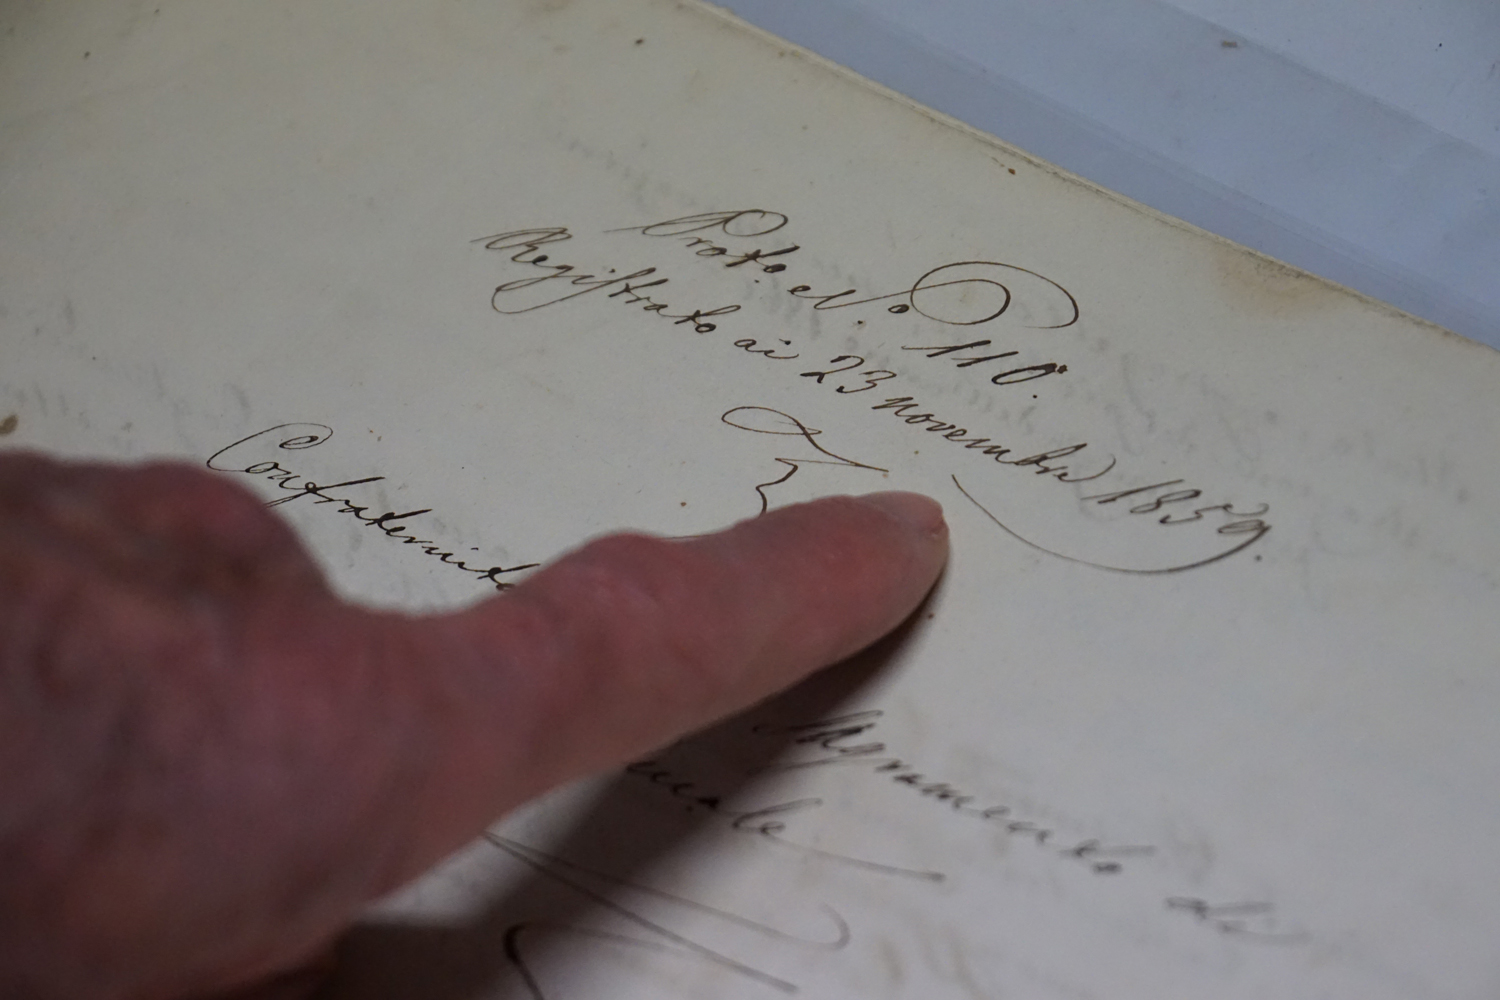 Protocol N.º 110.
Registrato ai 23 novembre 1859.
Confraternita
Sagramento di